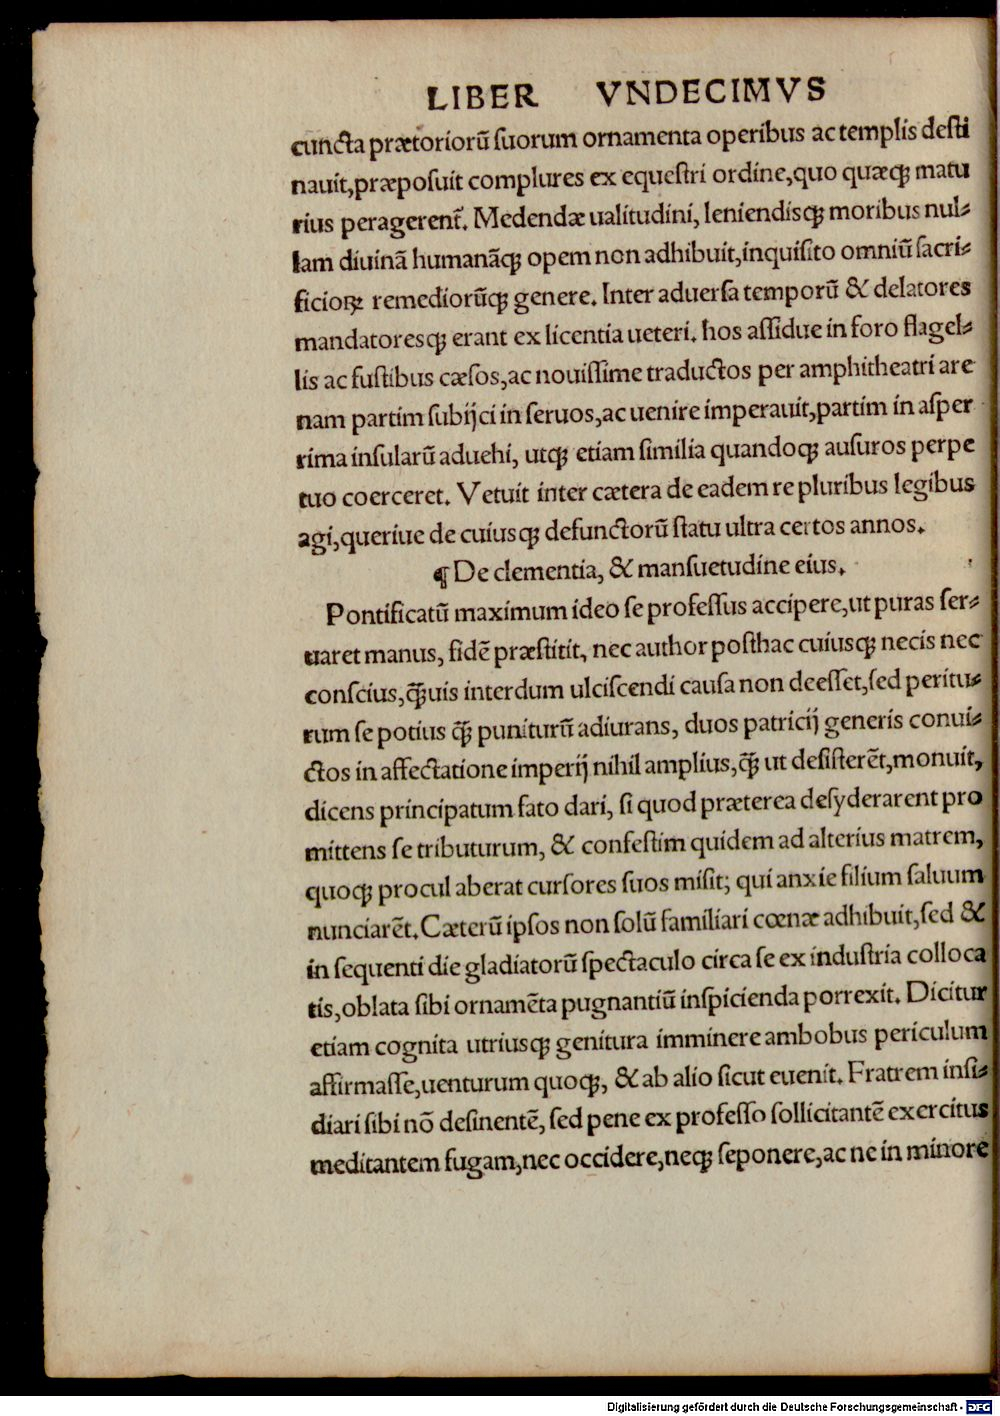 LIBER VNDECIMVS
cuncta prætoriorū ſuorum ornamenta operibus ac templis deſti
nauit,præpoſuit complures ex equeſtri ordine,quo quæqꝫ matu
rius peragerent᷑. Medendæ ualitudini, leniendisqꝫ moribus nul⸗
lam diuinā humanāqꝫ opem non adhibuit,inquiſito omniū ſacri⸗
ficioꝝ remediorūqꝫ genere. Inter aduerſa temporū & delatores
mandatoresqꝫ erant ex licentia ueteri. hos aſſidue in foro flagel⸗
lis ac fuſtibus cæſos,ac nouiſſime traductos per amphitheatri are
nam partim ſubijci in ſeruos,ac uenire imperauit,partim in aſper
rima inſularū aduehi, utqꝫ etiam ſimilia quandoqꝫ auſuros perpe
tuo coerceret. Vetuit inter cætera de eadem re pluribus legibus
agi,queriue de cuiusqꝫ defunctorū ſtatu ultra certos annos.
¶ De clementia, & manſuetudine eius.
Pontificatū maximum ideo ſe profeſſus accipere,ut puras ſer⸗
uaret manus, fidē præſtitit, nec author poſthac cuiusqꝫ necis nec
conſcius,q̄ꝫuis interdum ulciſcendi cauſa non deeſſet,ſed peritu⸗
rum ſe potius q̄ꝫ puniturū adiurans, duos patricij generis conui⸗
ctos in affectatione imperij nihil amplius,q̄ꝫ ut deſiſterēt,monuit,
dicens principatum fato dari, ſi quod præterea deſyderarent pro
mittens ſe tributurum, & confeſtim quidem ad alterius matrem,
quoqꝫ procul aberat curſores ſuos miſit; qui anxie filium ſaluum
nunciarēt.Cæterū ipſos non ſolū familiari cœnæ adhibuit,ſed &
in ſequenti die gladiatorū ſpectaculo circa ſe ex induſtria colloca
tis,oblata ſibi ornamēta pugnantiū inſpicienda porrexit. Dicitur
etiam cognita utriusqꝫ genitura imminere ambobus periculum
affirmaſſe,uenturum quoqꝫ, & ab alio ſicut euenit. Fratrem inſi⸗
diari ſibi nō deſinentē, ſed pene ex profeſſo ſollicitantē exercitus
meditantem fugam,nec occidere,neqꝫ ſeponere,ac ne in minore
Digitalisierung gefördert durch die Deutsche Forschungsgemeinschaft - DFG